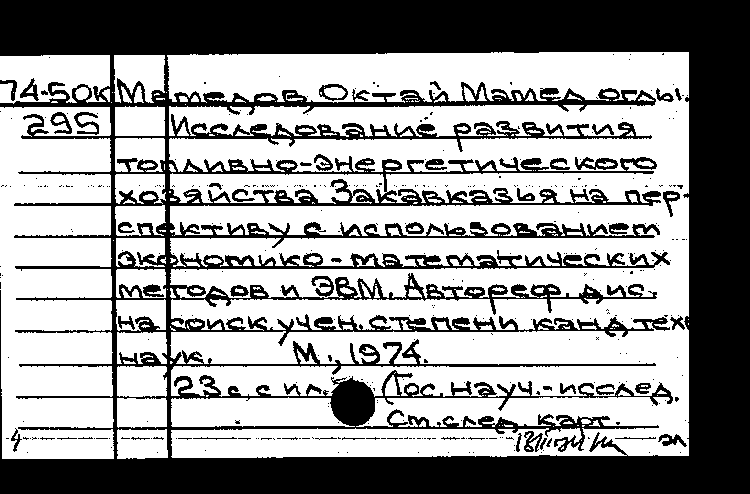 74-50к Мамедов, Октай Мамед оглы.
295 Исследование развития
топливно-энергетического
хозяйства Закавказья на пер-
спективу с использованием
экономико-математических
методов и ЭВМ. Автореф. дис.
на соиск. учен. степени канд. техн
наук. М., 1974.
23 с. с ил. (Гос. науч.-исслед.
См. след. карт.
эл